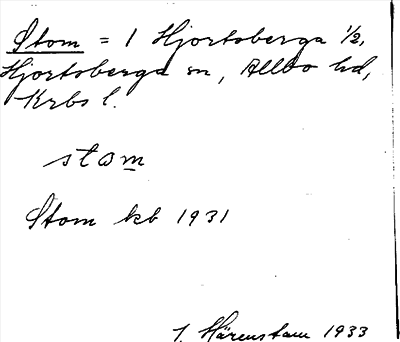 Stom = 1 Hjortsberga 1/2,
Hjortsberga sn, Allbo hd,
Krbs l.
stom
Stom kb 1931
J. Härenstam 1933